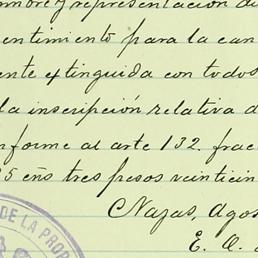 nombre y representación de
entimiento para la can
ente extinguida con todos
la inscripción relativa a
nforme al arto 132. frac
5 eños tres pesos veinticin
Nazas, Agos
E. A.
DE LA PROP